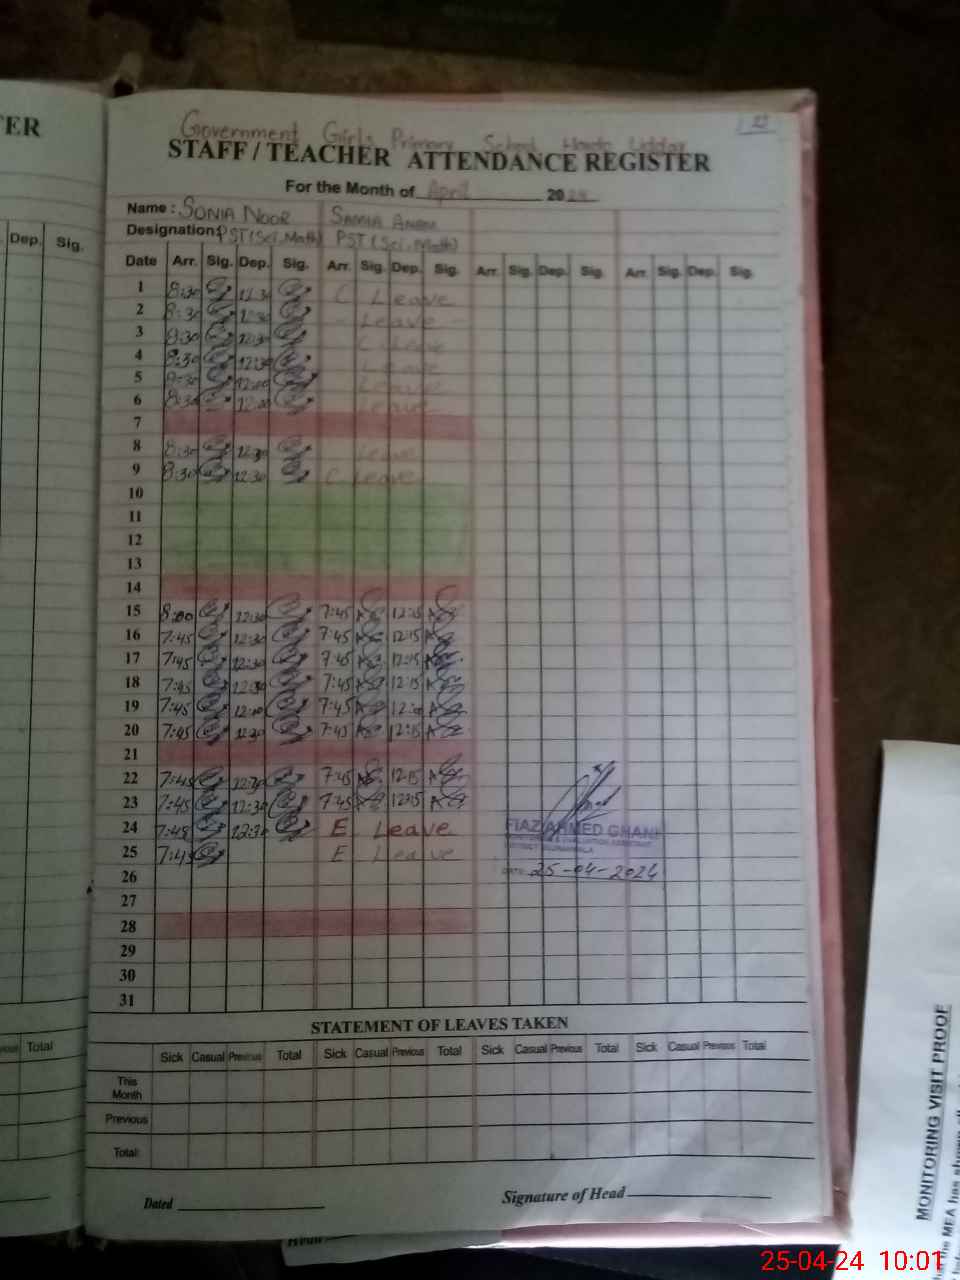 TER
Government Girls Primary School
STAFF / TEACHER ATTENDANCE REGISTER
For the Month of April 2024
Name: SONIA NOOR SAMIA ANAM
Designation: PST (Sci, Math) PST (Sci, Math)
Dep. Sig.
Date Arr. Sig. Dep. Sig. Arr. Sig. Dep. Sig. Arr. Sig. Dep. Sig. Arr. Sig. Dep. Sig.
1 8:30 12:30 C Leave
2 8:30 12:30 Leave
3 8:30 12:30 C Leave
4 8:30 12:30 Leave
5 8:30 12:00 Leave
6 8:30 12:00 Leave
7
8 8:30 12:30 Leave
9 8:30 12:30 C Leave
10
11
12
13
14
15 8:00 12:30 7:45 12:15
16 7:45 12:30 7:45 12:15
17 7:45 12:30 7:45 12:15
18 7:45 12:30 7:45 12:15
19 7:45 7:45
20 7:45 12:30 7:45 12:15
21
22 7:45 12:30 7:45 12:15
23 7:45 12:30 7:45 12:15
24 7:45 12:30 E Leave
25 7:45 E Leave
FIAZ AHMED GHANI
MONITORING & EVALUATION ASSISTANT
DATE: 25-04-2024
26
27
28
29
30
31
STATEMENT OF LEAVES TAKEN
Total
Sick Casual Previous Total Sick Casual Previous Total Sick Casual Previous Total Sick Casual Previous Total
This
Month
Previous
Total:
Dated
Signature of Head
Head
MONITORING VISIT PROOF
the MEA has shown
25-04-24 10:01